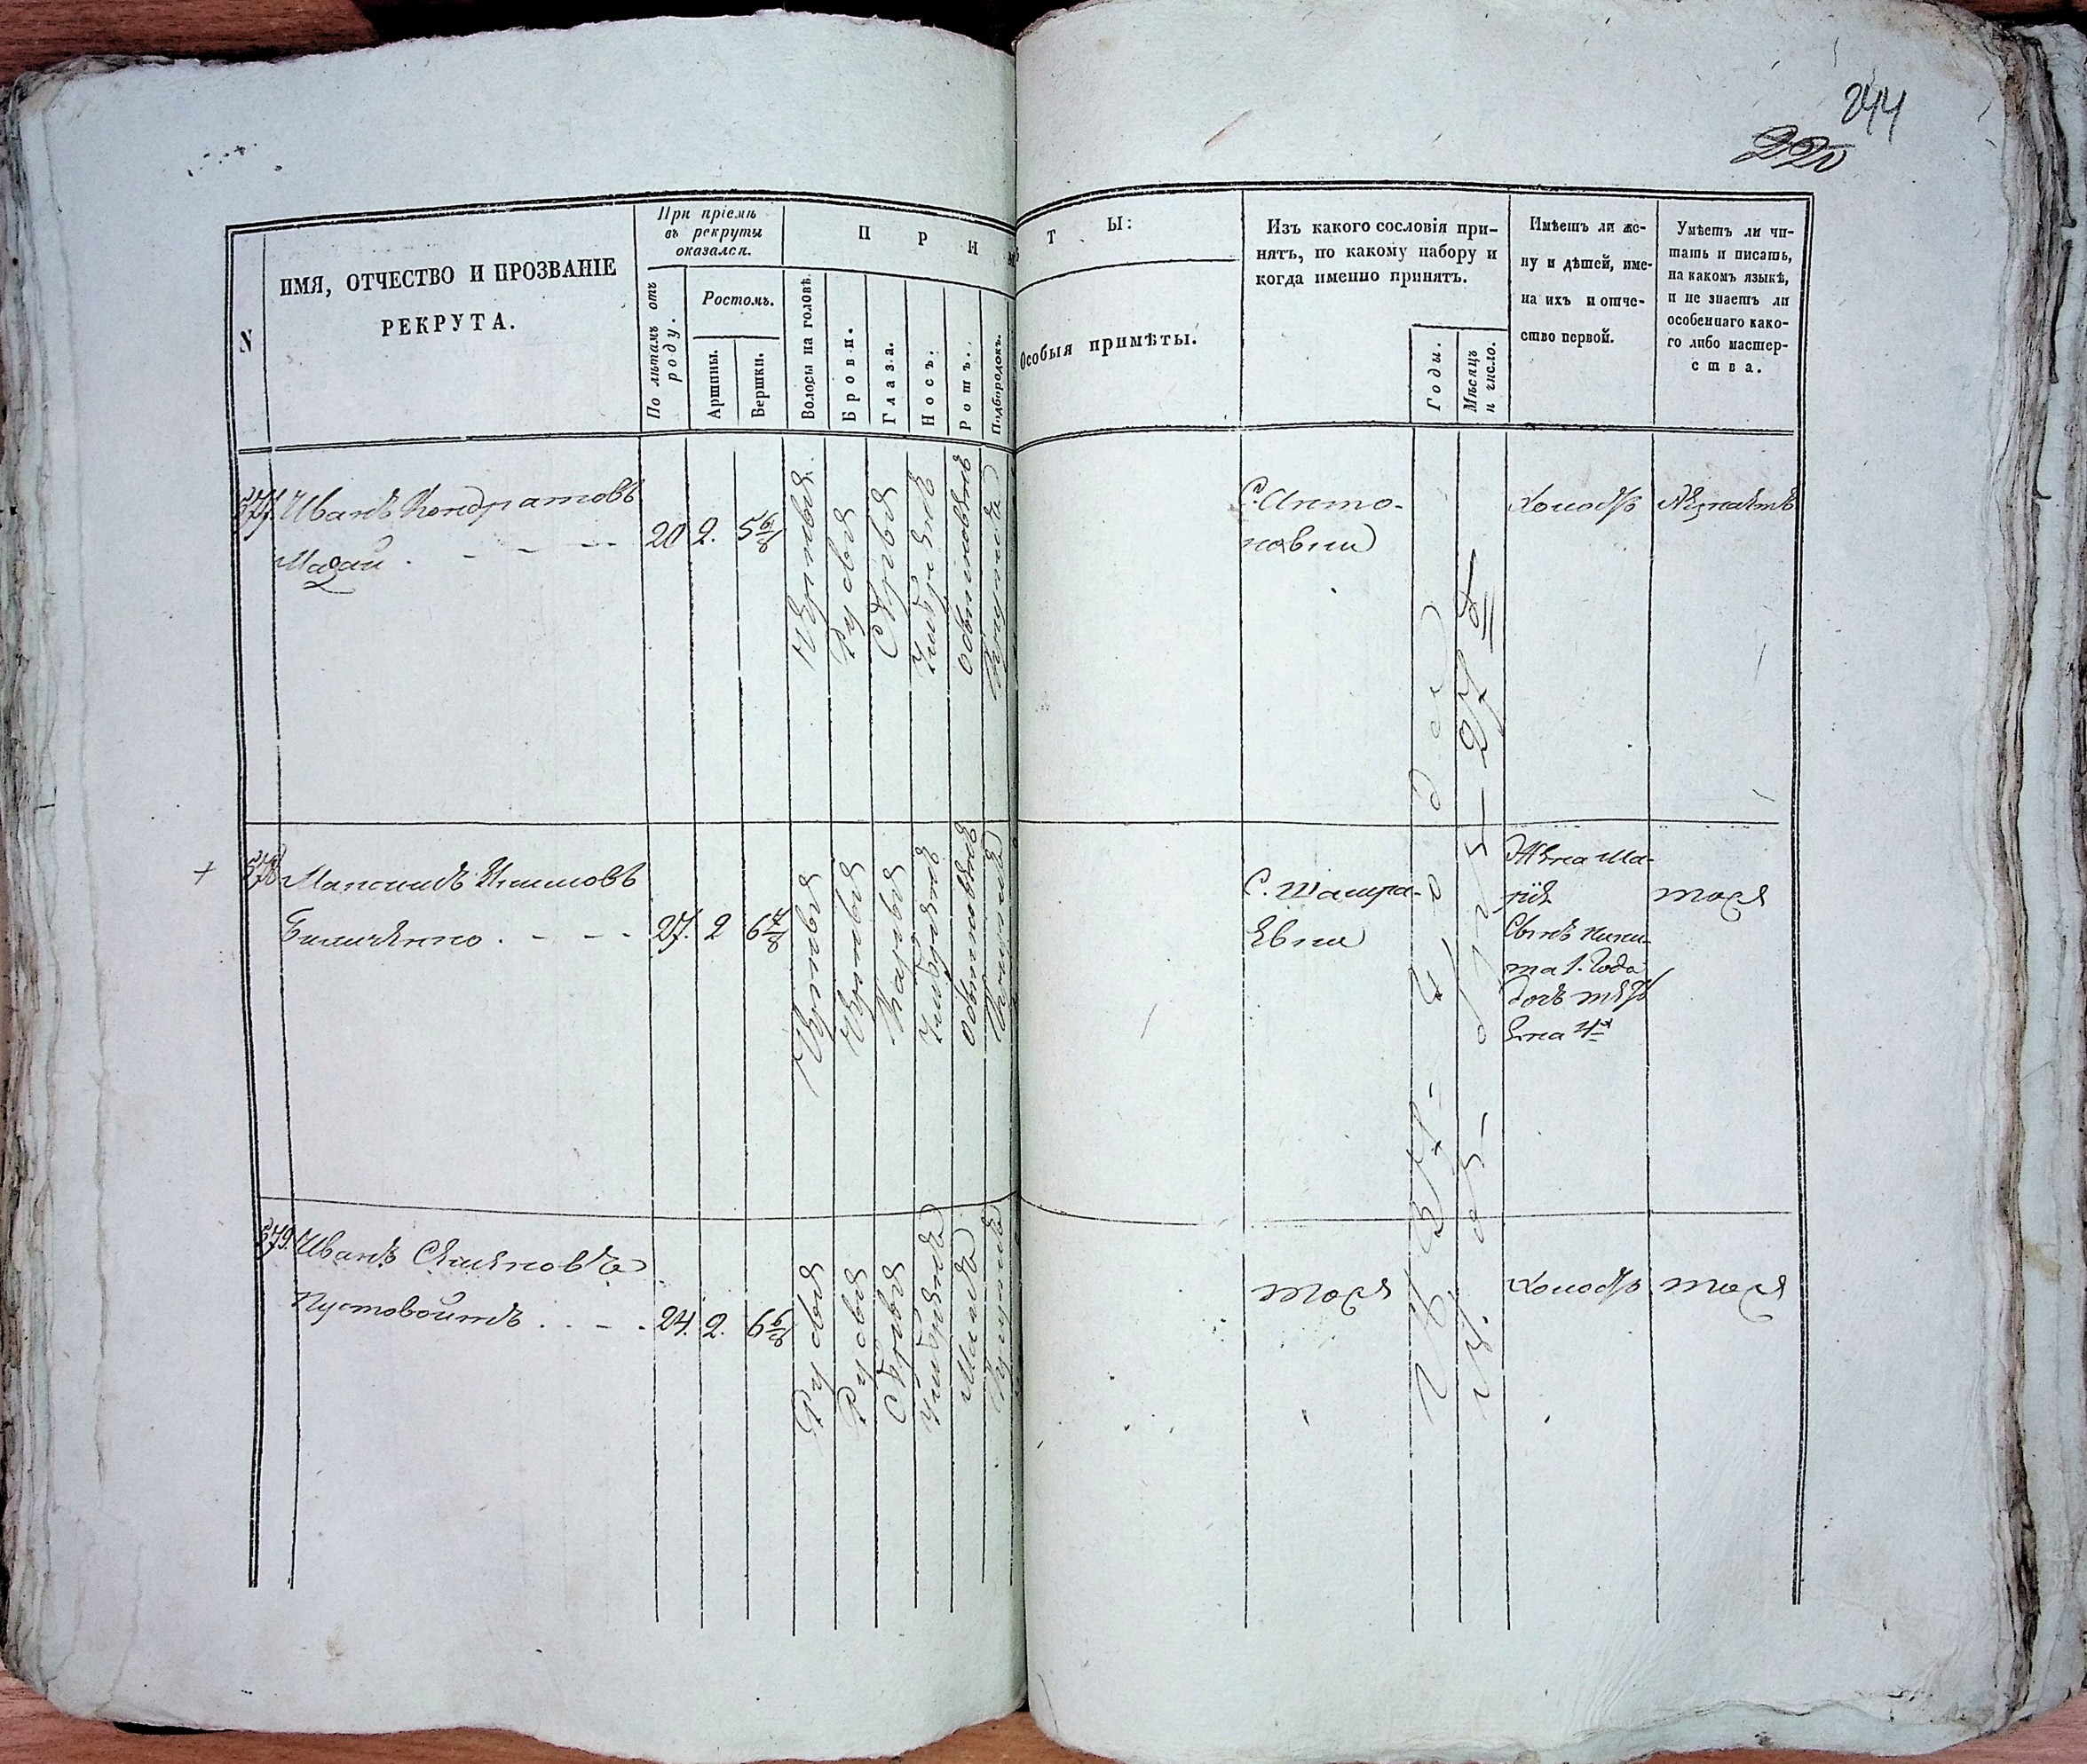 244
220
N
ИМЯ, ОТЧЕСТВО И ПРОЗВАНІЕ
РЕКРУТА.
При пріемѣ
въ рекруты
оказался.
По лѣтамъ отъ
роду.
Ростомъ.
Аршины.
Вершки.
П Р И М Ѣ Т Ы:
Волосы на головѣ.
Брови.
Глаза.
Носъ.
Ротъ.
Подбородокъ.
Особыя примѣты.
Изъ какого сословія при-
нятъ, по какому набору и
когда именно принятъ.
Годы.
Мѣсяцъ
и число.
Имѣетъ ли же-
ну и дѣтей, име-
на ихъ и отче-
ство первой.
Умѣетъ ли чи-
тать и писать,
на какомъ языкѣ,
и не знаетъ ли
особеннаго како-
го либо мастер-
ства.
577. Иванъ Кондратовъ
Мазай
20
2.
5 6/8
Черныя
Русыя
Серыя
Умереннъ
Обыкновеннъ
С. Анто-
новки
Холостъ
Незнаетъ
578 Максимъ Екимовъ
Биличенко
27.
2
6 7/8
Черныя
Черныя
Карыя
Умереннъ
Обыкновеннъ
С. Шамра-
евки
Жена Ма-
рія
Сынъ Ники-
та 1. Года
дочь
тоже
579. Иванъ Семеновъ
Пустовойтъ
24.
2.
6 6/8
Русыя
Русыя
Серыя
Умереннъ
Малъ
тоже
Холостъ
тоже
года
27